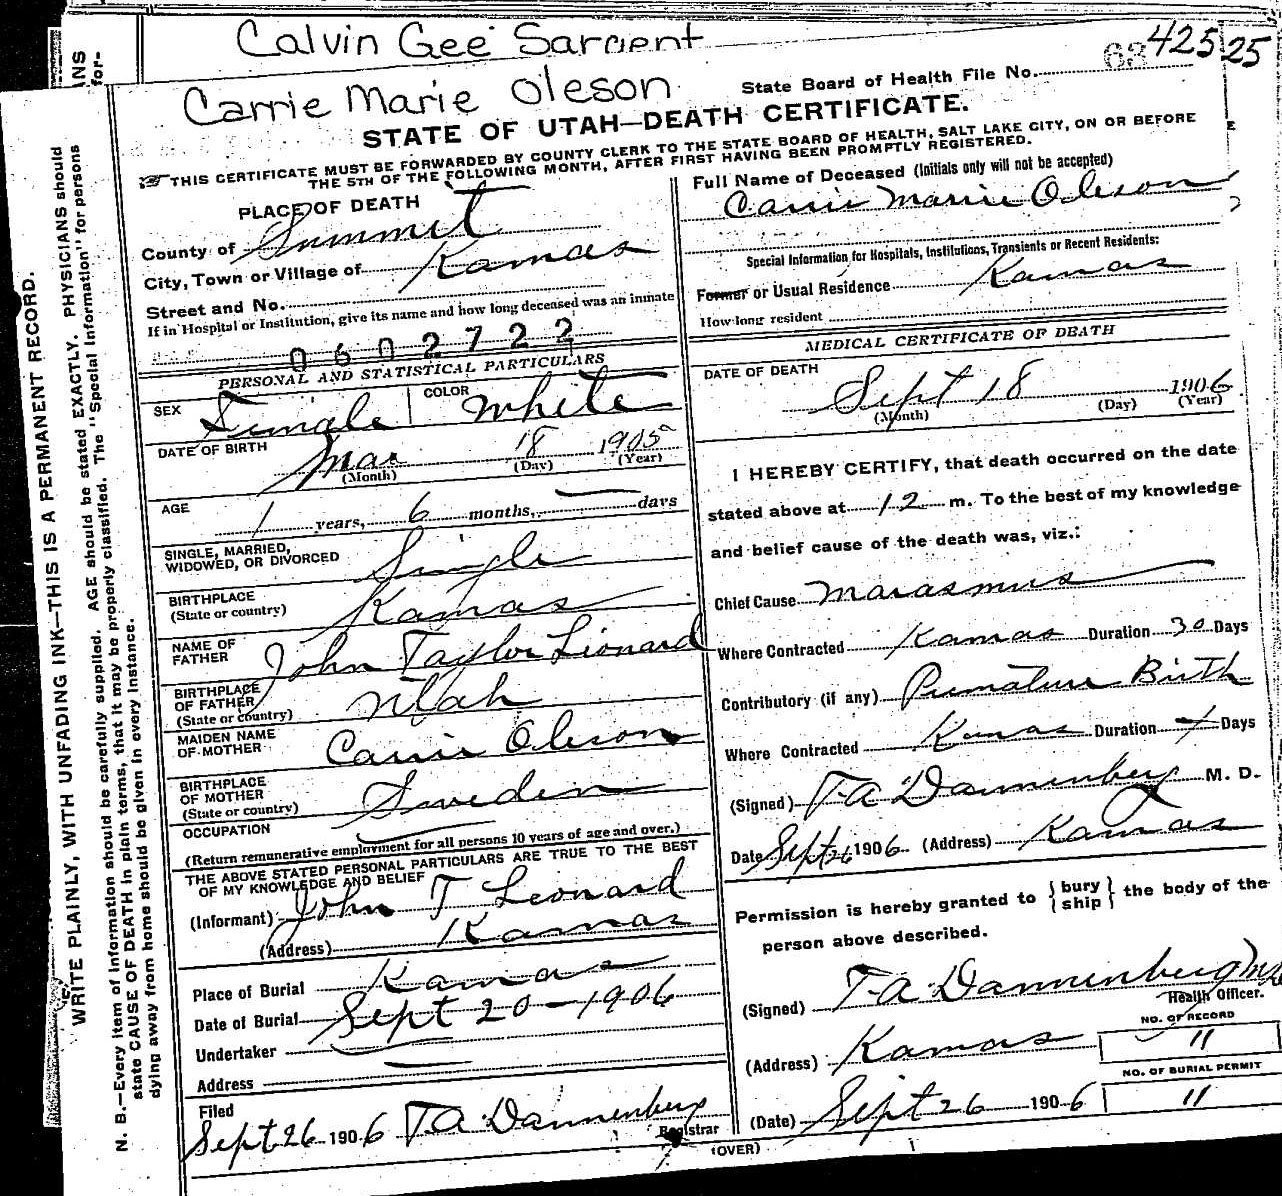 Calvin Gee Sargent
Carrie Marie Oleson
63425 25
State Board of Health File No.
STATE OF UTAH—DEATH CERTIFICATE.
THIS CERTIFICATE MUST BE FORWARDED BY COUNTY CLERK TO THE STATE BOARD OF HEALTH, SALT LAKE CITY, ON OR BEFORE
THE 5TH OF THE FOLLOWING MONTH, AFTER FIRST HAVING BEEN PROMPTLY REGISTERED.
PLACE OF DEATH
County of Summit
City, Town or Village of Kamas
Street and No.
If in Hospital or Institution, give its name and how long deceased was an inmate
0602722
PERSONAL AND STATISTICAL PARTICULARS
SEX Female COLOR White
DATE OF BIRTH Mar 18 1905
(Month) (Day) (Year)
AGE 1 years, 6 months, — days
SINGLE, MARRIED,
WIDOWED, OR DIVORCED Single
BIRTHPLACE
(State or country) Kamas
NAME OF
FATHER John Taylor Lionard
BIRTHPLACE
OF FATHER
(State or country) Utah
MAIDEN NAME
OF MOTHER Carrie Oleson
BIRTHPLACE
OF MOTHER
(State or country) Sweden
OCCUPATION
(Return remunerative employment for all persons 10 years of age and over.)
THE ABOVE STATED PERSONAL PARTICULARS ARE TRUE TO THE BEST
OF MY KNOWLEDGE AND BELIEF
(Informant) John T Leonard
(Address) Kamas
Place of Burial Kamas
Date of Burial Sept 20-1906
Undertaker —
Address —
Filed
Sept 26 1906 T A Dannenberg
Registrar
(OVER)
Full Name of Deceased (Initials only will not be accepted)
Carrie Marie Oleson
Special Information for Hospitals, Institutions, Transients or Recent Residents:
Former or Usual Residence Kamas
How long resident
MEDICAL CERTIFICATE OF DEATH
DATE OF DEATH
Sept 18 1906
(Month) (Day) (Year)
I HEREBY CERTIFY, that death occurred on the date
stated above at 12 m. To the best of my knowledge
and belief cause of the death was, viz.:
Chief Cause Marasmus
Where Contracted Kamas Duration 30 Days
Contributory (if any) Premature Birth
Where Contracted Kamas Duration Days
(Signed) T A Dannenberg M. D.
Date Sept 26 1906 (Address) Kamas
Permission is hereby granted to { bury / ship } the body of the
person above described.
(Signed) T A Dannenberg MD
Health Officer.
NO. OF RECORD
(Address) Kamas 11
NO. OF BURIAL PERMIT
(Date) Sept 26 1906 11
WRITE PLAINLY, WITH UNFADING INK—THIS IS A PERMANENT RECORD.
N. B.—Every item of information should be carefully supplied. AGE should be stated EXACTLY. PHYSICIANS should
state CAUSE OF DEATH in plain terms, that it may be properly classified. The "Special Information" for persons
dying away from home should be given in every instance.